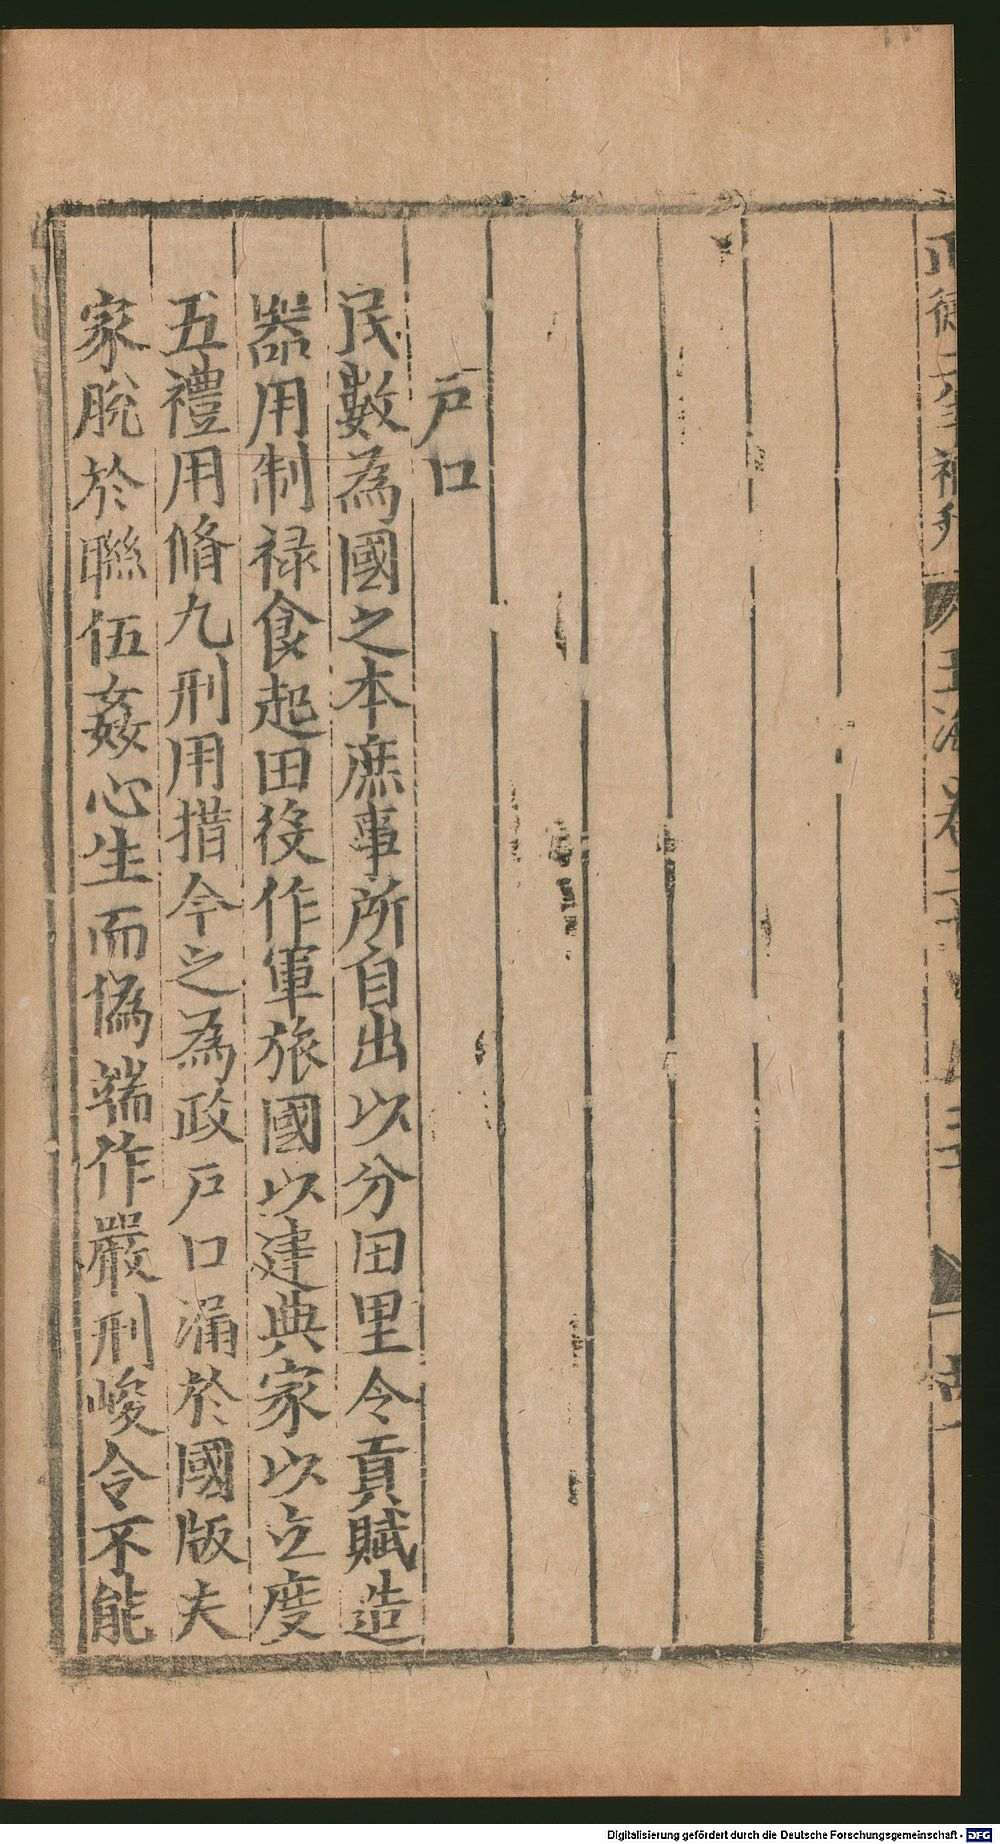 正德二年補刋 玉海卷二十
戶口
民數為國之本庶事所自出以分田里令貢賦造
器用制祿食起田役作軍旅國以建典家以立度
五禮用脩九刑用措今之為政戶口漏於國版夫
家脫於聯伍姦心生而偽端作嚴刑峻令不能
Digitalisierung gefördert durch die Deutsche Forschungsgemeinschaft - DFG